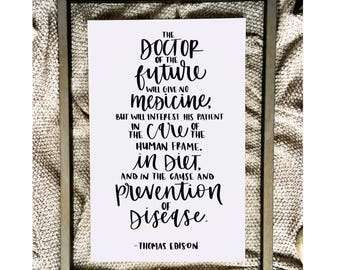 THE
DOCTOR
OF THE
future
WILL GIVE NO
medicine,
BUT WILL INTEREST HIS PATIENT
IN THE CARE OF THE
HUMAN FRAME,
in DIET,
AND IN THE CAUSE AND
Prevention
OF
Disease.
-THOMAS EDISON